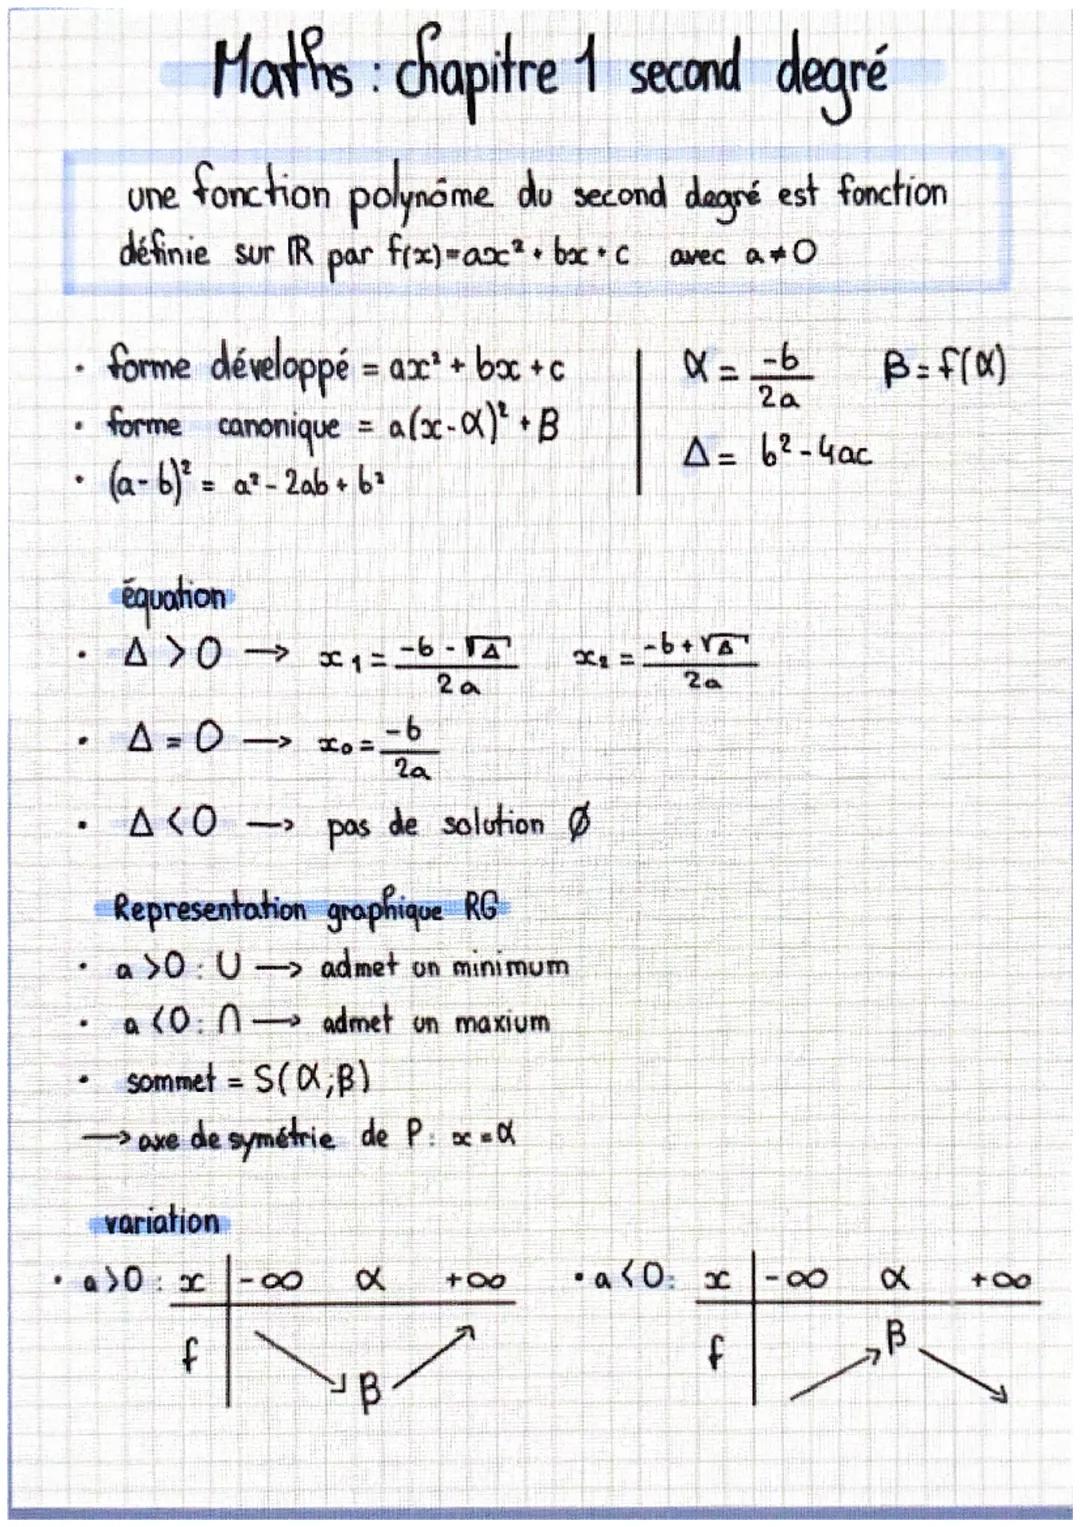 Maths : chapitre 1 second degré
une fonction polynôme du second degré est fonction
définie sur ℝ par f(x)=ax²+bx+c avec a≠0
• forme développé = ax² + bx + c
• forme canonique = a(x-α)² + β
• (a-b)² = a² - 2ab + b²
α = -b/2a β = f(α)
Δ = b² - 4ac
équation
• Δ > 0 → x₁ = (-b - √Δ)/2a x₂ = (-b + √Δ)/2a
• Δ = 0 → x₀ = -b/2a
• Δ < 0 → pas de solution Ø
Representation graphique RG
• a > 0 : U → admet un minimum
• a < 0 : ∩ → admet un maxium
• sommet = S(α;β)
→ axe de symétrie de P : x = α
variation
• a > 0 : x -∞ α +∞
f β
• a < 0 : x -∞ α +∞
f β